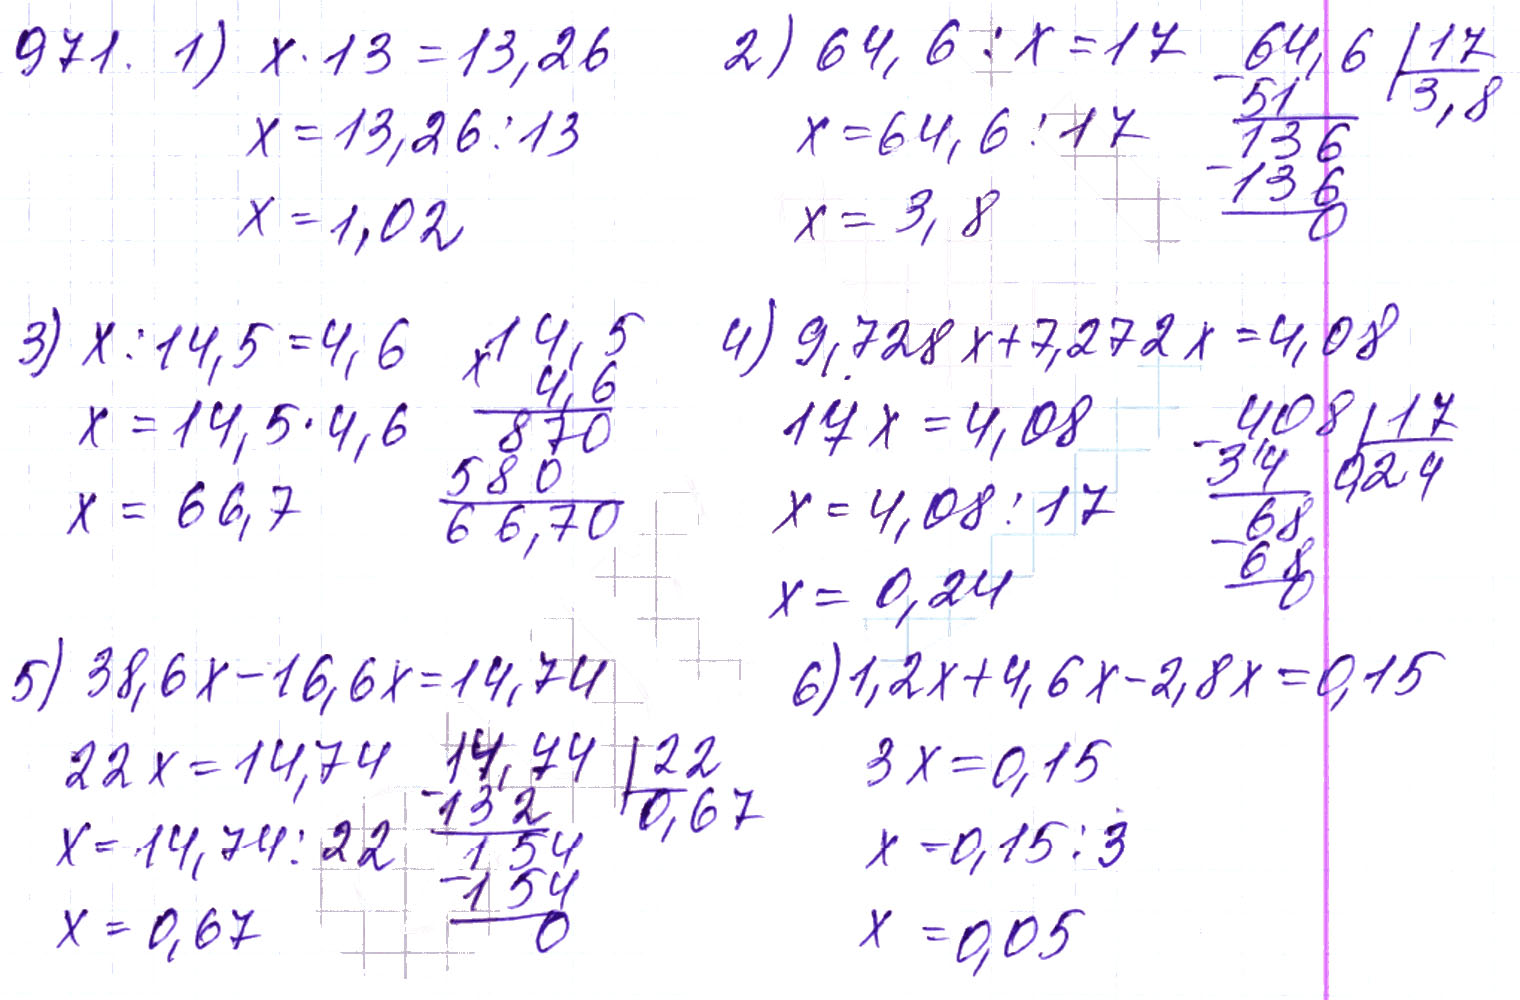 971. 1) x · 13 = 13,26
x = 13,26 : 13
x = 1,02
2) 64,6 : x = 17
x = 64,6 : 17
x = 3,8
64,6 | 17
- 51
3,8
136
- 136
0
3) x : 14,5 = 4,6
x = 14,5 · 4,6
x = 66,7
14,5
x 4,6
870
580
66,70
4) 9,728x + 7,272x = 4,08
17x = 4,08
x = 4,08 : 17
x = 0,24
408 | 17
- 34
0,24
68
- 68
0
5) 38,6x - 16,6x = 14,74
22x = 14,74
x = 14,74 : 22
x = 0,67
14,74 | 22
- 132
0,67
154
- 154
0
6) 1,2x + 4,6x - 2,8x = 0,15
3x = 0,15
x = 0,15 : 3
x = 0,05